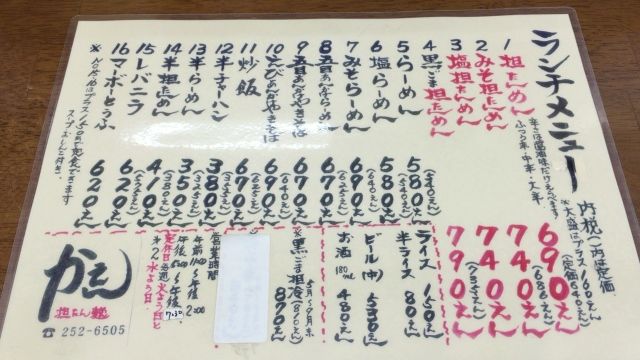 ランチメニュー
辛さは醤油味だけえらべます
ふつう辛・中辛・大辛
内税()内は定価
※大盛はプラス160えん
1 担たんめん 690えん
2 みそ担たんめん 740えん
3 塩担たんめん 740えん
4 黒ごま担たんめん 790えん
5 らーめん 580えん (540えん)
6 塩らーめん 580えん
7 みそらーめん 690えん (640えん)
8 五目あんかけらーめん 690えん
9 五目あんかけやきそば 690えん (640えん)
10 えびあんかけやきそば 670えん
11 炒飯 670えん
12 半チャーハン 380えん
13 半らーめん 350えん
14 半担たんめん 410えん (380えん)
15 レバニラ 620えん
16 マーボーとうふ 620えん
※No15,16はプラス150円で定食できます
スープ、おしんこ付き。
ライス 150えん
半ライス 80えん
ビール(中) 530えん
お酒 180ml 480えん
5月〜9月末
※黒ごま担冷 870えん (810えん)
営業時間
午前11:00〜午後2:00
午後5:00〜午後7:30
定休日 毎週火よう日と
水よう日
担たん麺
☎252-6505